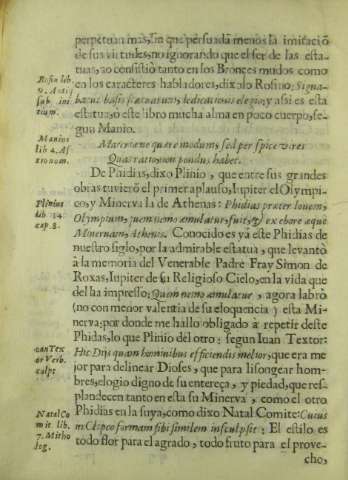 perpetuan mas, sin que persuadā menos la imitaciō
de sus virtudes, no ignorando que el ser de las esta-
tuas, no consistio tanto en los Bronces mudos como
en los caractêres habladores, dixolo Rosino: Signa-
bazus basis statuarum, dedicationis elogio, y assi es esta
estatua, o este libro mucha alma en poco cuerpo, se-
gun Manio.
Rosin lib.
9. Anti
sub ini
tium.
Manius
lib 4. As
tronom.
Materiæ ne quære modum, sed perspice vires
Quas ratio, non pondus habet.
De Phidias, dixo Plinio, que entre sus grandes
obras tuvierō el primer aplauso, Iupiter el Olympi-
co, y Minerva la de Athenas: Phidias præter Iouem,
Olympium, quem nemo æmulatur, fuit, & ex ebore æque
Minervam, Athenis. Conocido es yá este Phidias de
nuestro siglo, por la admirable estatua, que levantò
à la memoria del Venerable Padre Fray Simon de
Roxas, Iupiter de su Religioso Cielo, en la vida que
del ha impresso: Quem nemo æmulatur, agora labrò
(no con menor valentia de su eloquencia) y esta Mi-
nerva; por donde me hallo obligado à repetir deste
Phidas, lo que Plinio del otro: segun Iuan Textor:
Plinius
lib 34.
cap. 8.
Ioan Tex
tor Verb.
culpt
Hic Dijs quam hominibus efficiendis melior, que era me
jor para delinear Dioses, que para lisongear hom-
bres, elogio digno de su entereça, y piedad, que res-
plandecen tanto en esta su Minerva, como el otro
Phidias en la suya, como dixo Natal Comite: Cuius
in Clypeo formam sibi similem insculpsit: El estilo es
todo flor para el agrado, todo fruto para el prove-
cho,
Natal Co
mit. lib.
7. Mitho
log.